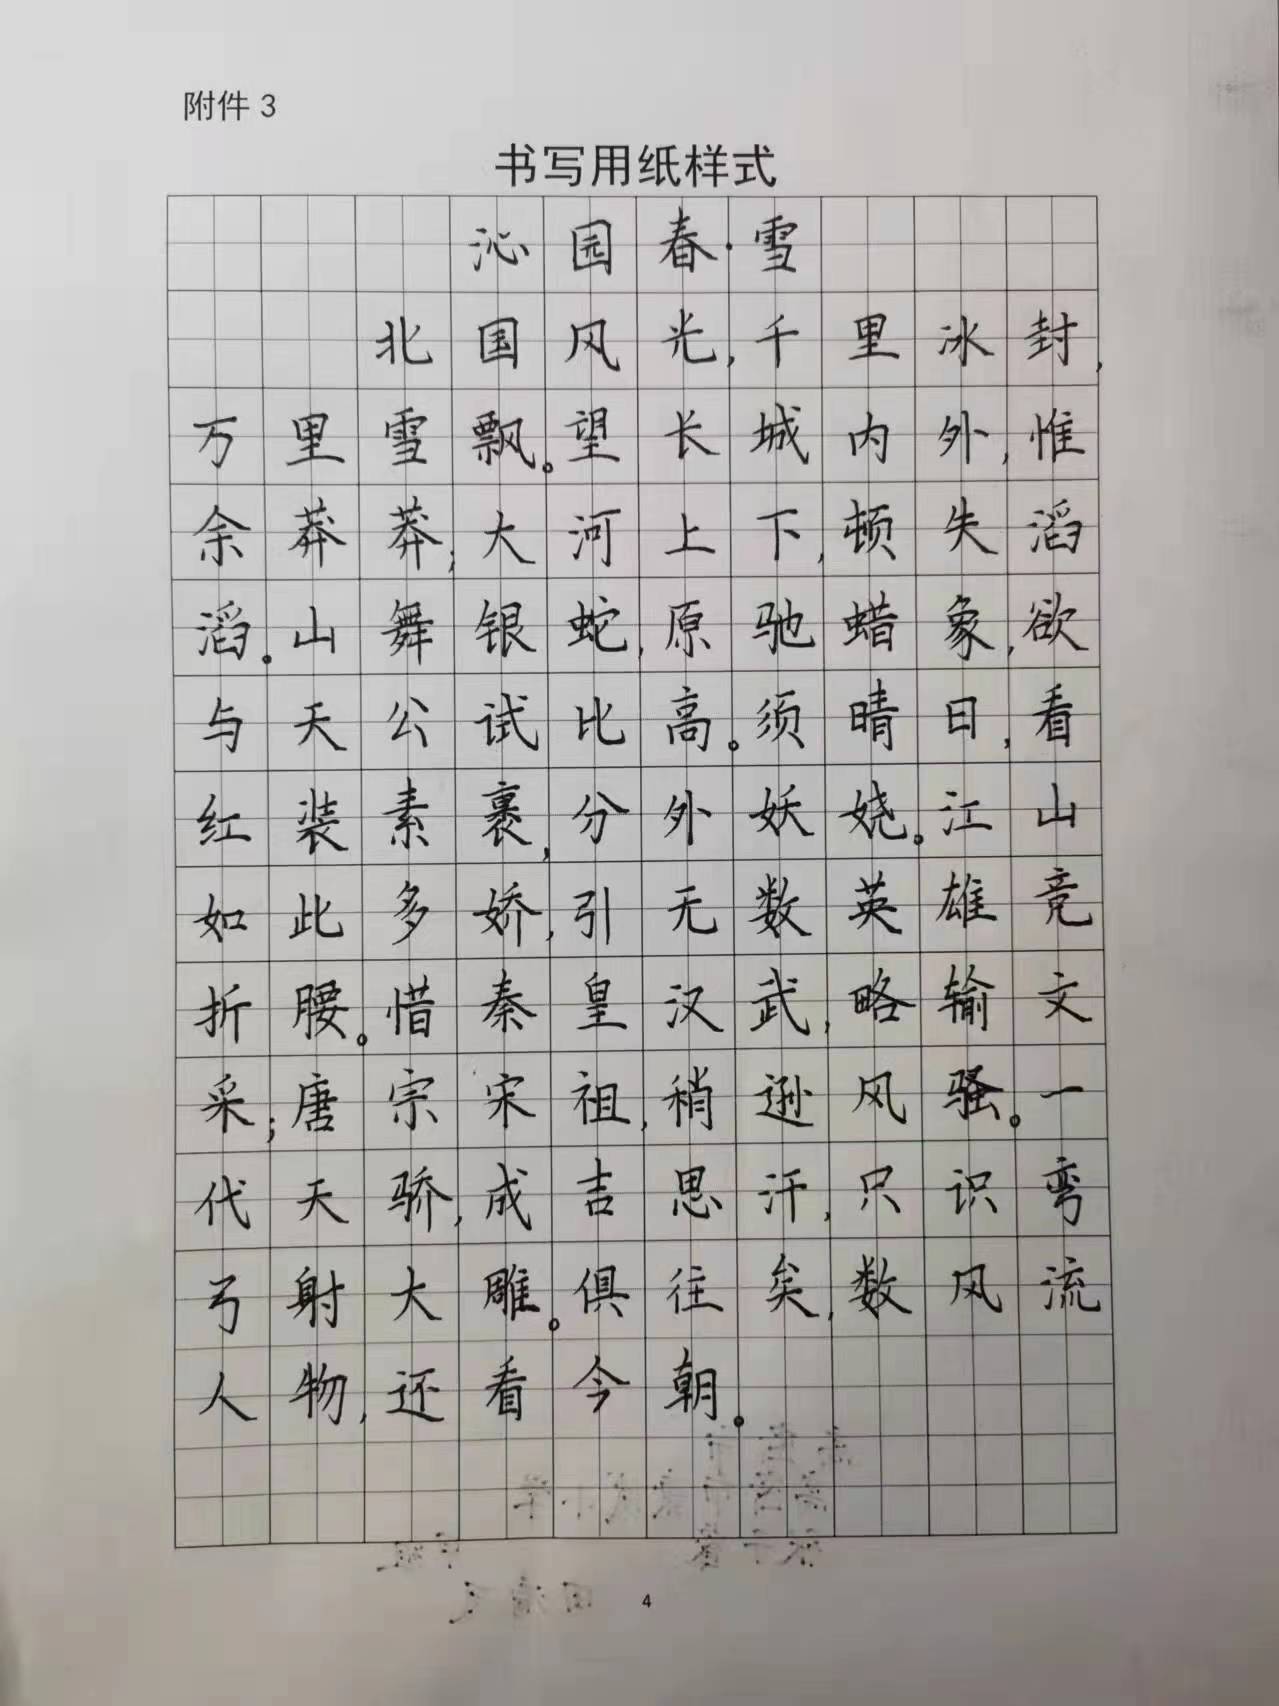 附件 3
书写用纸样式
沁园春·雪
北国风光,千里冰封,
万里雪飘。望长城内外,惟
余莽莽;大河上下,顿失滔
滔。山舞银蛇,原驰蜡象,欲
与天公试比高。须晴日,看
红装素裹,分外妖娆。江山
如此多娇,引无数英雄竞
折腰。惜秦皇汉武,略输文
采;唐宗宋祖,稍逊风骚。一
代天骄,成吉思汗,只识弯
弓射大雕。俱往矣,数风流
人物,还看今朝。
4